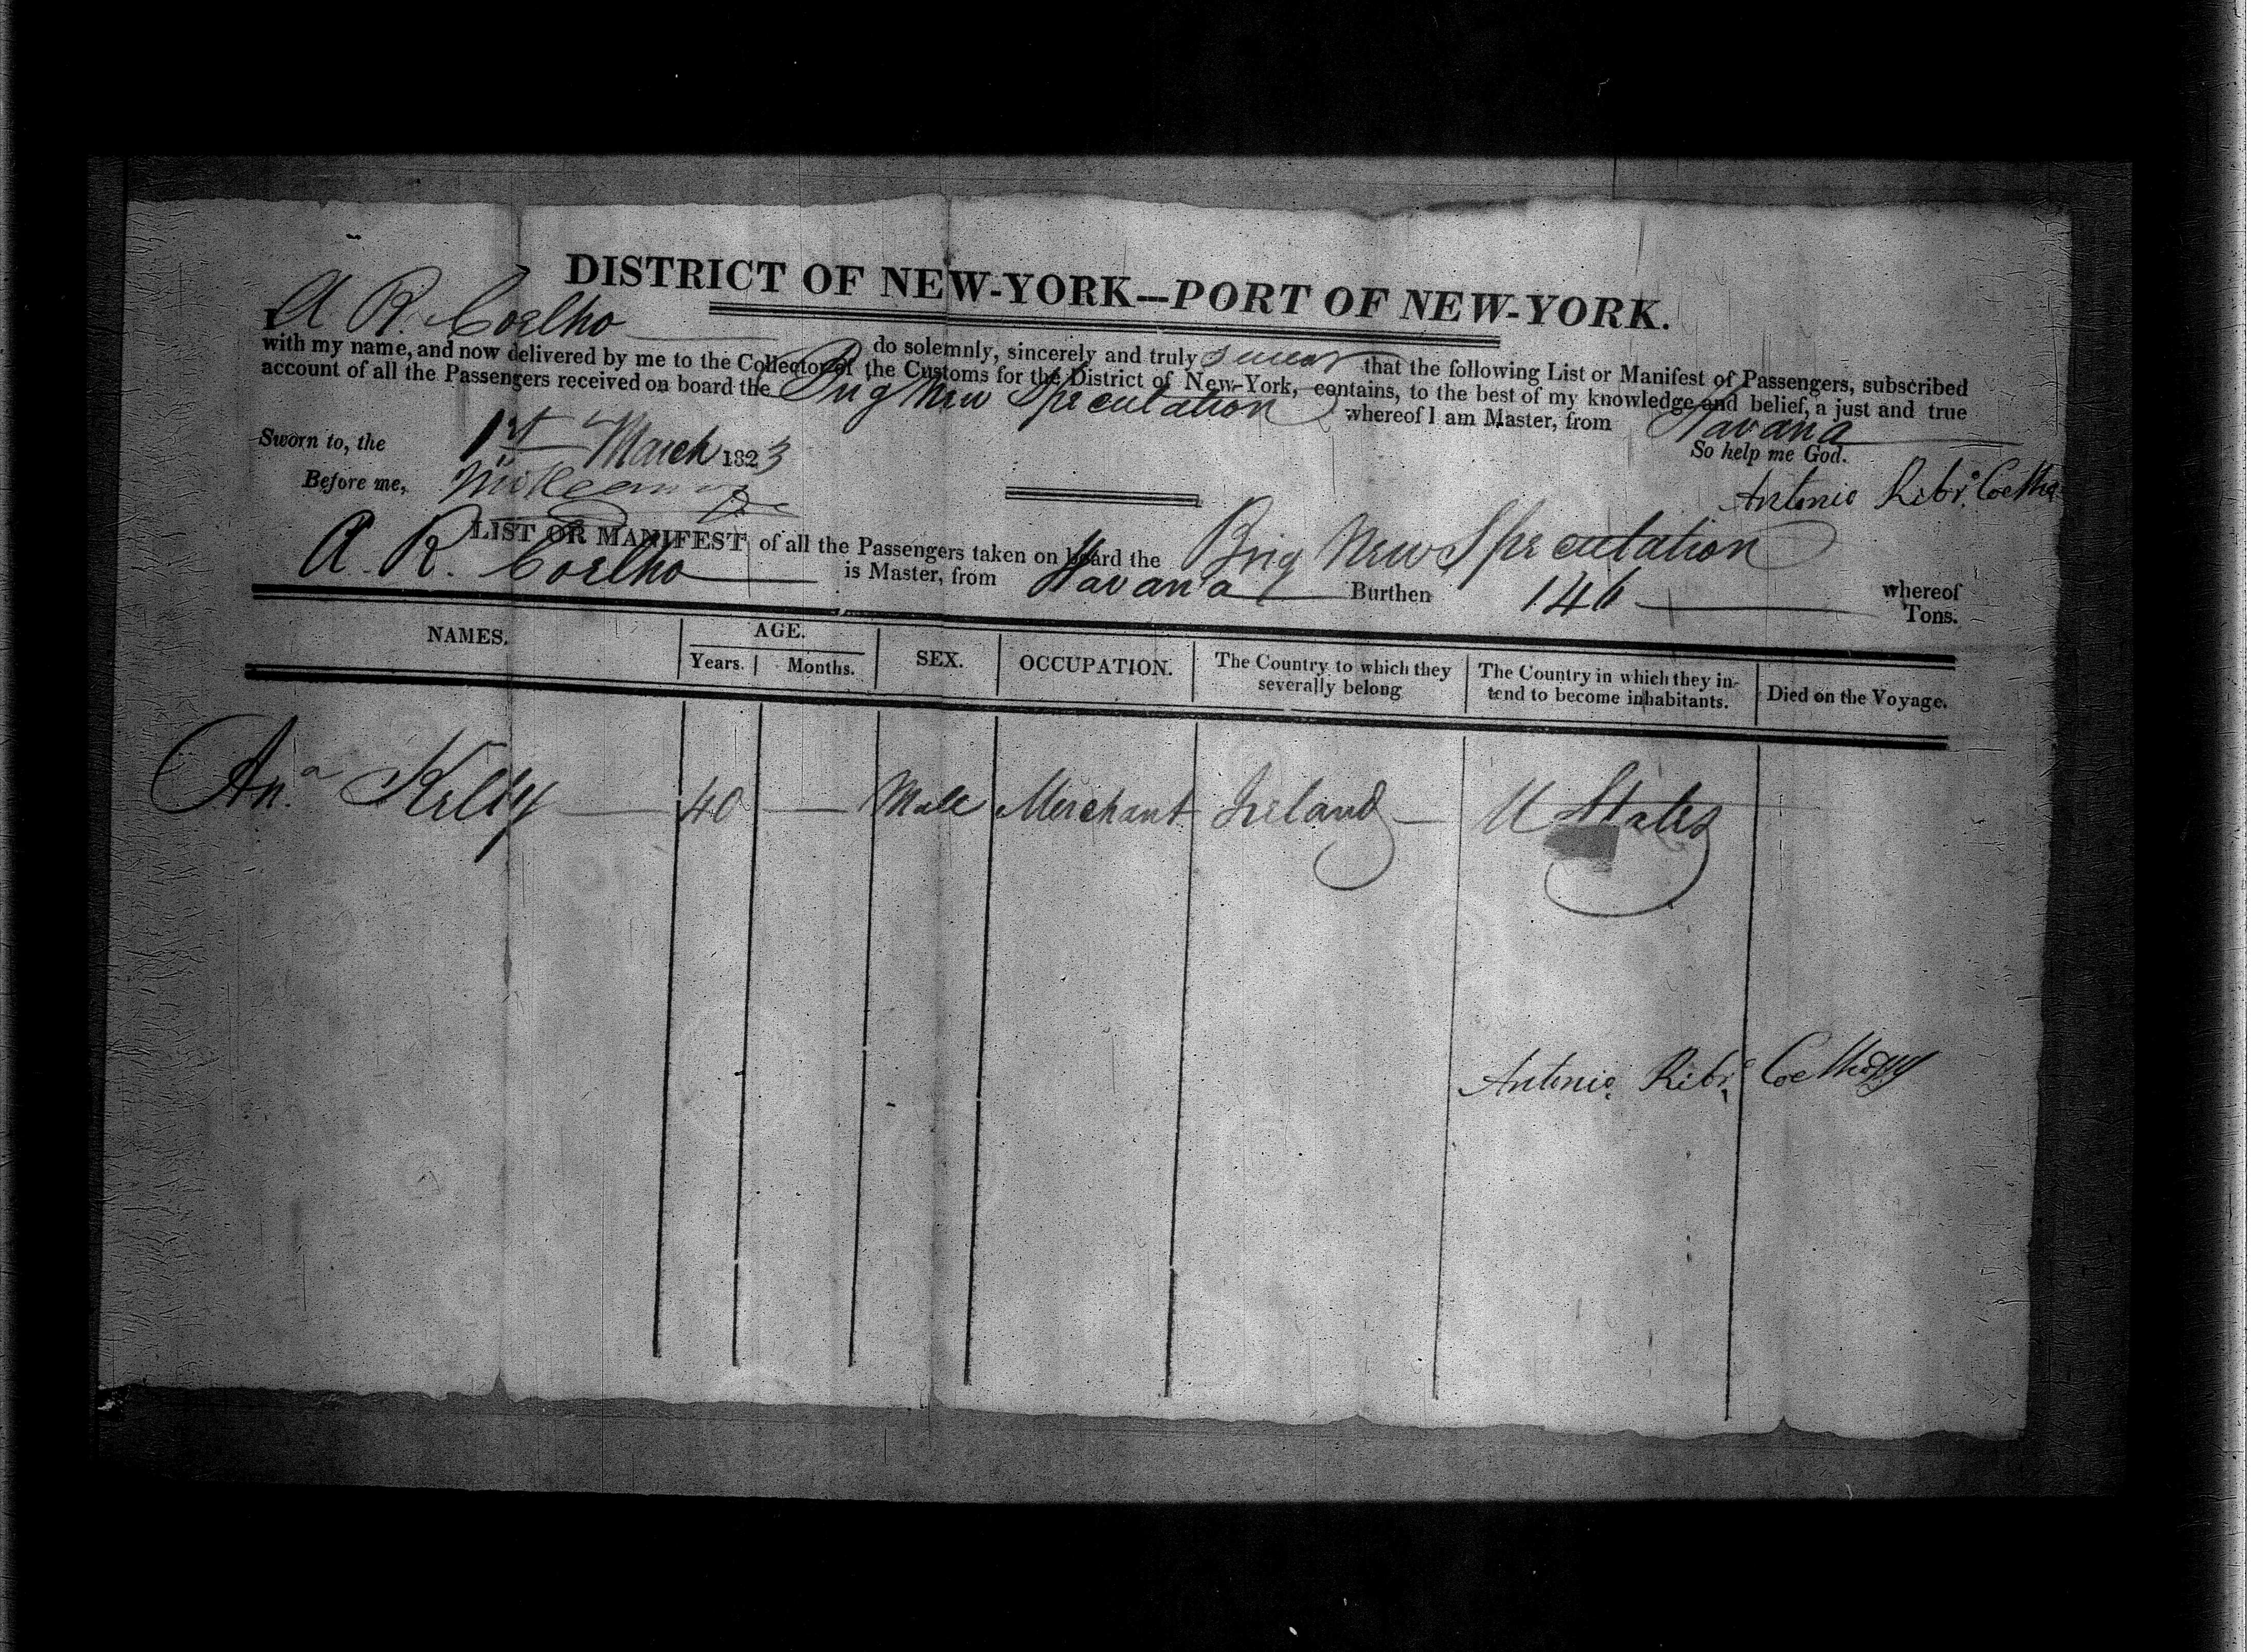 DISTRICT OF NEW-YORK---PORT OF NEW-YORK.
I A R. Coelho do solemnly, sincerely and truly swear that the following List or Manifest of Passengers, subscribed
with my name, and now delivered by me to the Collector of the Customs for the District of New-York, contains, to the best of my knowledge and belief, a just and true
account of all the Passengers received on board the Brig New Speculation whereof I am Master, from Havana
So help me God.
Sworn to, the 1st March 1823
Antonio Ribr.o Coelho
Before me,
LIST OR MANIFEST of all the Passengers taken on board the Brig New Speculation whereof
A. R. Coelho is Master, from Havana Burthen 146 Tons.
NAMES. AGE. SEX. OCCUPATION. The Country to which they severally belong The Country in which they intend to become inhabitants. Died on the Voyage.
Years. Months.
An.a Kelly 40 Male Merchant Ireland U States
Antonio Ribr.o Coelho